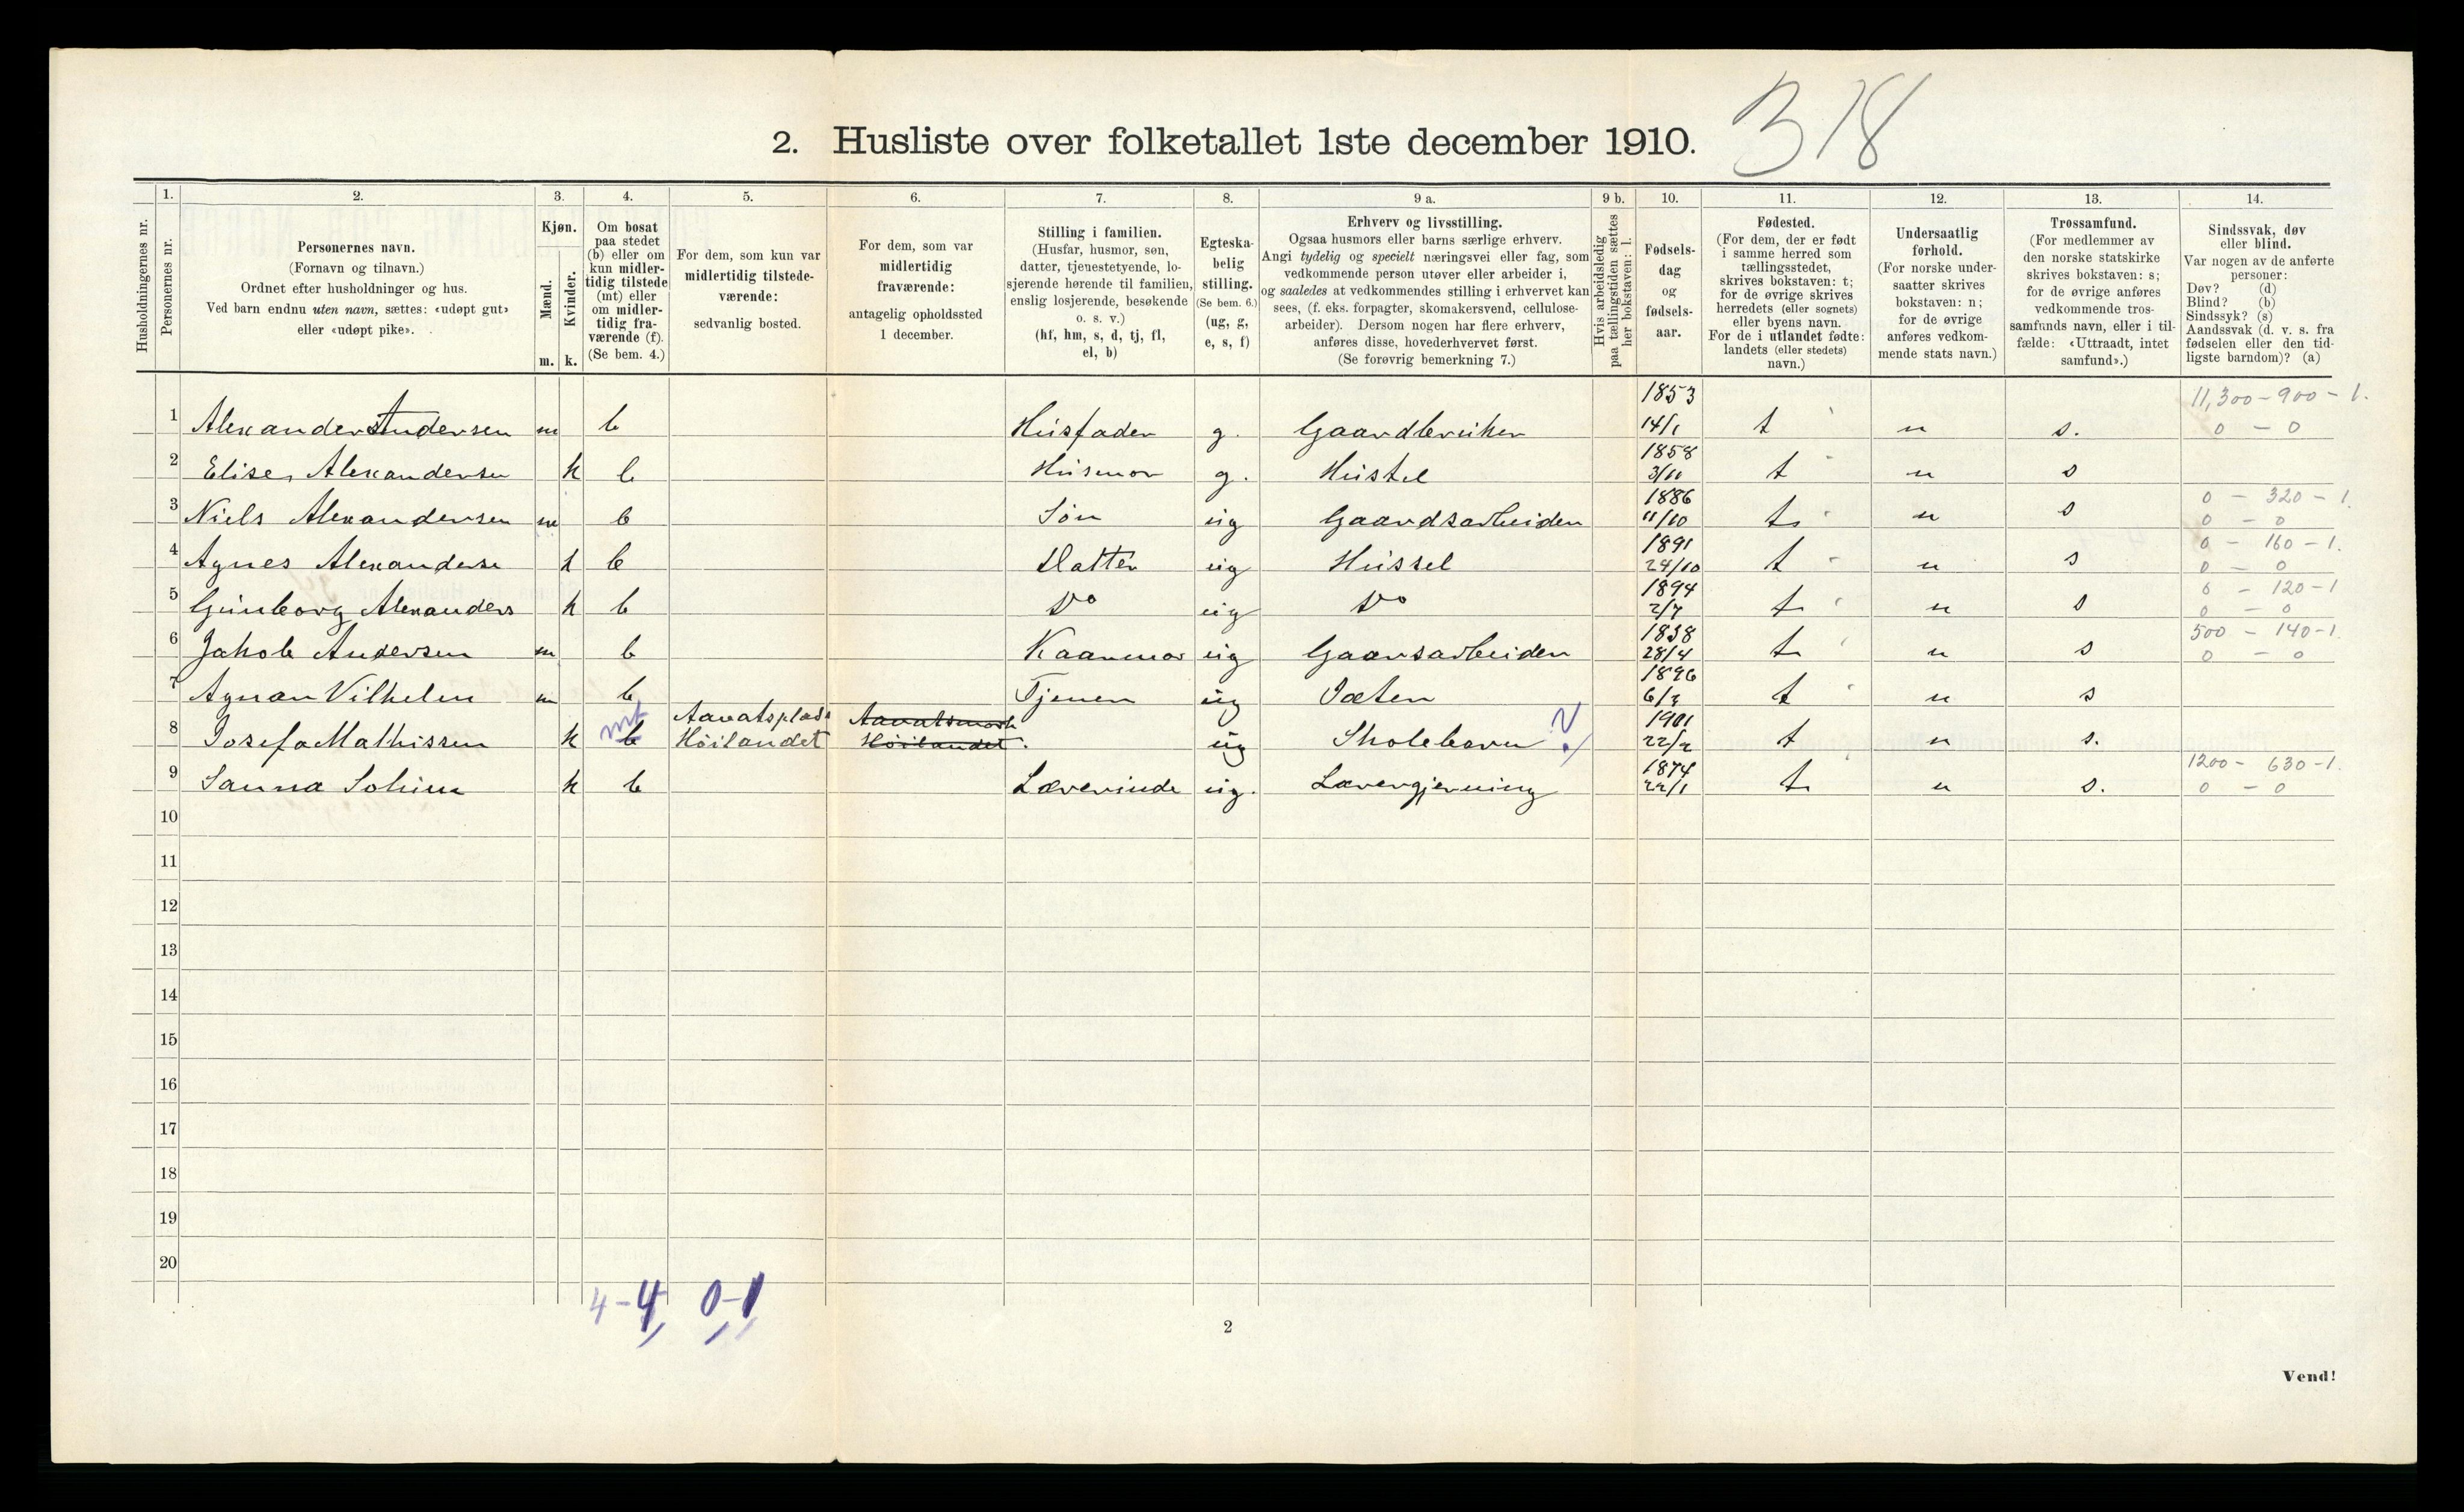 2. Husliste over folketallet 1ste december 1910.
318
Husholdningernes nr.
1.
Personernes nr.
2.
Personernes navn.
(Fornavn og tilnavn.)
Ordnet efter husholdninger og hus.
Ved barn endnu uten navn, sættes: «udøpt gut»
eller «udøpt pike».
3.
Kjøn.
Mænd.
Kvinder.
m. k.
4.
Om bosat
paa stedet
(b) eller om
kun midler-
tidig tilstede
(mt) eller
om midler-
tidig fra-
værende (f).
(Se bem. 4.)
5.
For dem, som kun var
midlertidig tilstede-
værende:
sedvanlig bosted.
6.
For dem, som var
midlertidig
fraværende:
antagelig opholdssted
1 december.
7.
Stilling i familien.
(Husfar, husmor, søn,
datter, tjenestetyende, lo-
sjerende hørende til familien,
enslig losjerende, besøkende
o. s. v.)
(hf, hm, s, d, tj, fl,
el, b)
8.
Egteska-
belig
stilling.
(Se bem. 6.)
(ug, g,
e, s, f)
9 a.
Erhverv og livsstilling.
Ogsaa husmors eller barns særlige erhverv.
Angi tydelig og specielt næringsvei eller fag, som
vedkommende person utøver eller arbeider i,
og saaledes at vedkommendes stilling i erhvervet kan
sees, (f. eks. forpagter, skomakersvend, cellulose-
arbeider). Dersom nogen har flere erhverv,
anføres disse, hovederhvervet først.
(Se forøvrig bemerkning 7.)
9 b.
Hvis arbeidsledig
paa tællingstiden sættes
her bokstaven: l.
10.
Fødsels-
dag
og
fødsels-
aar.
11.
Fødested.
(For dem, der er født
i samme herred som
tællingsstedet,
skrives bokstaven: t;
for de øvrige skrives
herredets (eller sognets)
eller byens navn.
For de i utlandet fødte:
landets (eller stedets)
navn.)
12.
Undersaatlig
forhold.
(For norske under-
saatter skrives
bokstaven: n;
for de øvrige
anføres vedkom-
mende stats navn.)
13.
Trossamfund.
(For medlemmer av
den norske statskirke
skrives bokstaven: s;
for de øvrige anføres
vedkommende tros-
samfunds navn, eller i til-
fælde: «Uttraadt, intet
samfund».)
14.
Sindssvak, døv
eller blind.
Var nogen av de anførte
personer:
Døv? (d)
Blind? (b)
Sindssyk? (s)
Aandssvak (d. v. s. fra
fødselen eller den tid-
ligste barndom)? (a)
1853 11,300 - 900 - 1.
1 Alexander Andersen m b Husfader g. Gaardbruker 14/1 t n s. 0 - 0
1858
2 Elise Alexandersen k b Husmor g. Hustel 3/10 t n s
1886 0 - 320 - 1
3 Niels Alexandersen m b Sön ug Gaardsarbeider 11/10 t n s 0 - 0
1891 0 - 160 - 1.
4 Agnes Alexanderse k b Datter ug Hussel 24/10 t n s 0 - 0
1894 0 - 120 - 1
5 Gunborg Alexanders k b Do ug Do 2/7 t n s 0 - 0
1838 500 - 140 - 1.
6 Jakob Andersen m b Kaarmor ug Gaarsarbeider 28/4 t n s 0 - 0
1896
7 Agnar Vilhelm m b Tjener ug Jæter t n s
mt Aavatsplads Aavatsmark 1901
8 Josefa Mathissen k b Höilandet Höilandet. ug Skolebarn ? 22/2 t n s.
1874 1200 - 630 - 1.
9 Sanna Solum k b Lærerinde ug. Lærergjerning 22/1 t n s. 0 - 0
10
11
12
13
14
15
16
17
18
19
20
4 - 4 0 - 1
2
Vend!